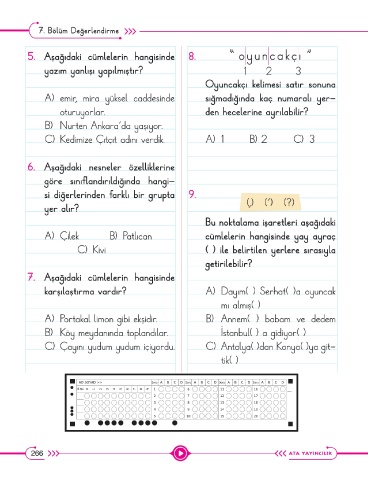 7. Bölüm Değerlendirme
5. Aşağıdaki cümlelerin hangisinde
yazım yanlışı yapılmıştır?
A) emir, mira yüksel caddesinde
oturuyorlar.
B) Nurten Ankara'da yaşıyor.
C) Kedimize Çıtçıt adını verdik.
6. Aşağıdaki nesneler özelliklerine
göre sınıflandırıldığında hangi-
si diğerlerinden farklı bir grupta
yer alır?
A) Çilek B) Patlıcan
C) Kivi
7. Aşağıdaki cümlelerin hangisinde
karşılaştırma vardır?
A) Portakal limon gibi ekşidir.
B) Köy meydanında toplandılar.
C) Çayını yudum yudum içiyordu.
8. " oyuncakçı "
1 2 3
Oyuncakçı kelimesi satır sonuna
sığmadığında kaç numaralı yer-
den hecelerine ayrılabilir?
A) 1 B) 2 C) 3
9. (,) (') (?)
Bu noktalama işaretleri aşağıdaki
cümlelerin hangisinde yay ayraç
( ) ile belirtilen yerlere sırasıyla
getirilebilir?
A) Dayım( ) Serhat( )a oyuncak
mı almış( )
B) Annem( ) babam ve dedem
İstanbul( ) a gidiyor( )
C) Antalya( )dan Konya( )ya git-
tik( )
266
ATA YAYINCILIK